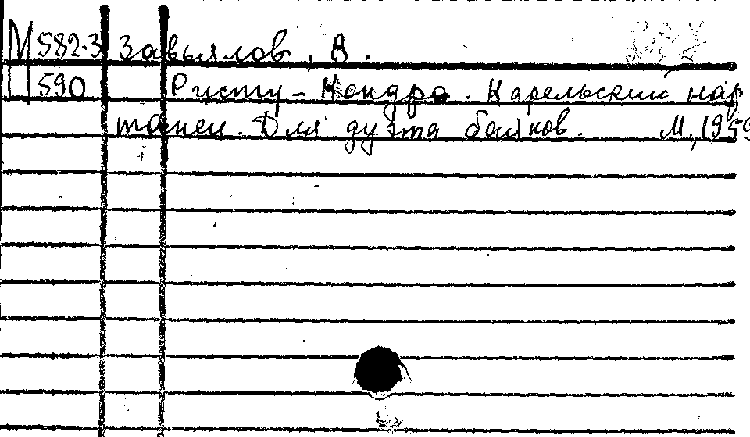 М 582-3 Завьялов, В.
590 Ристу-Кондра. Карельский нар
танец. Для дуэта баянов. М., 1959